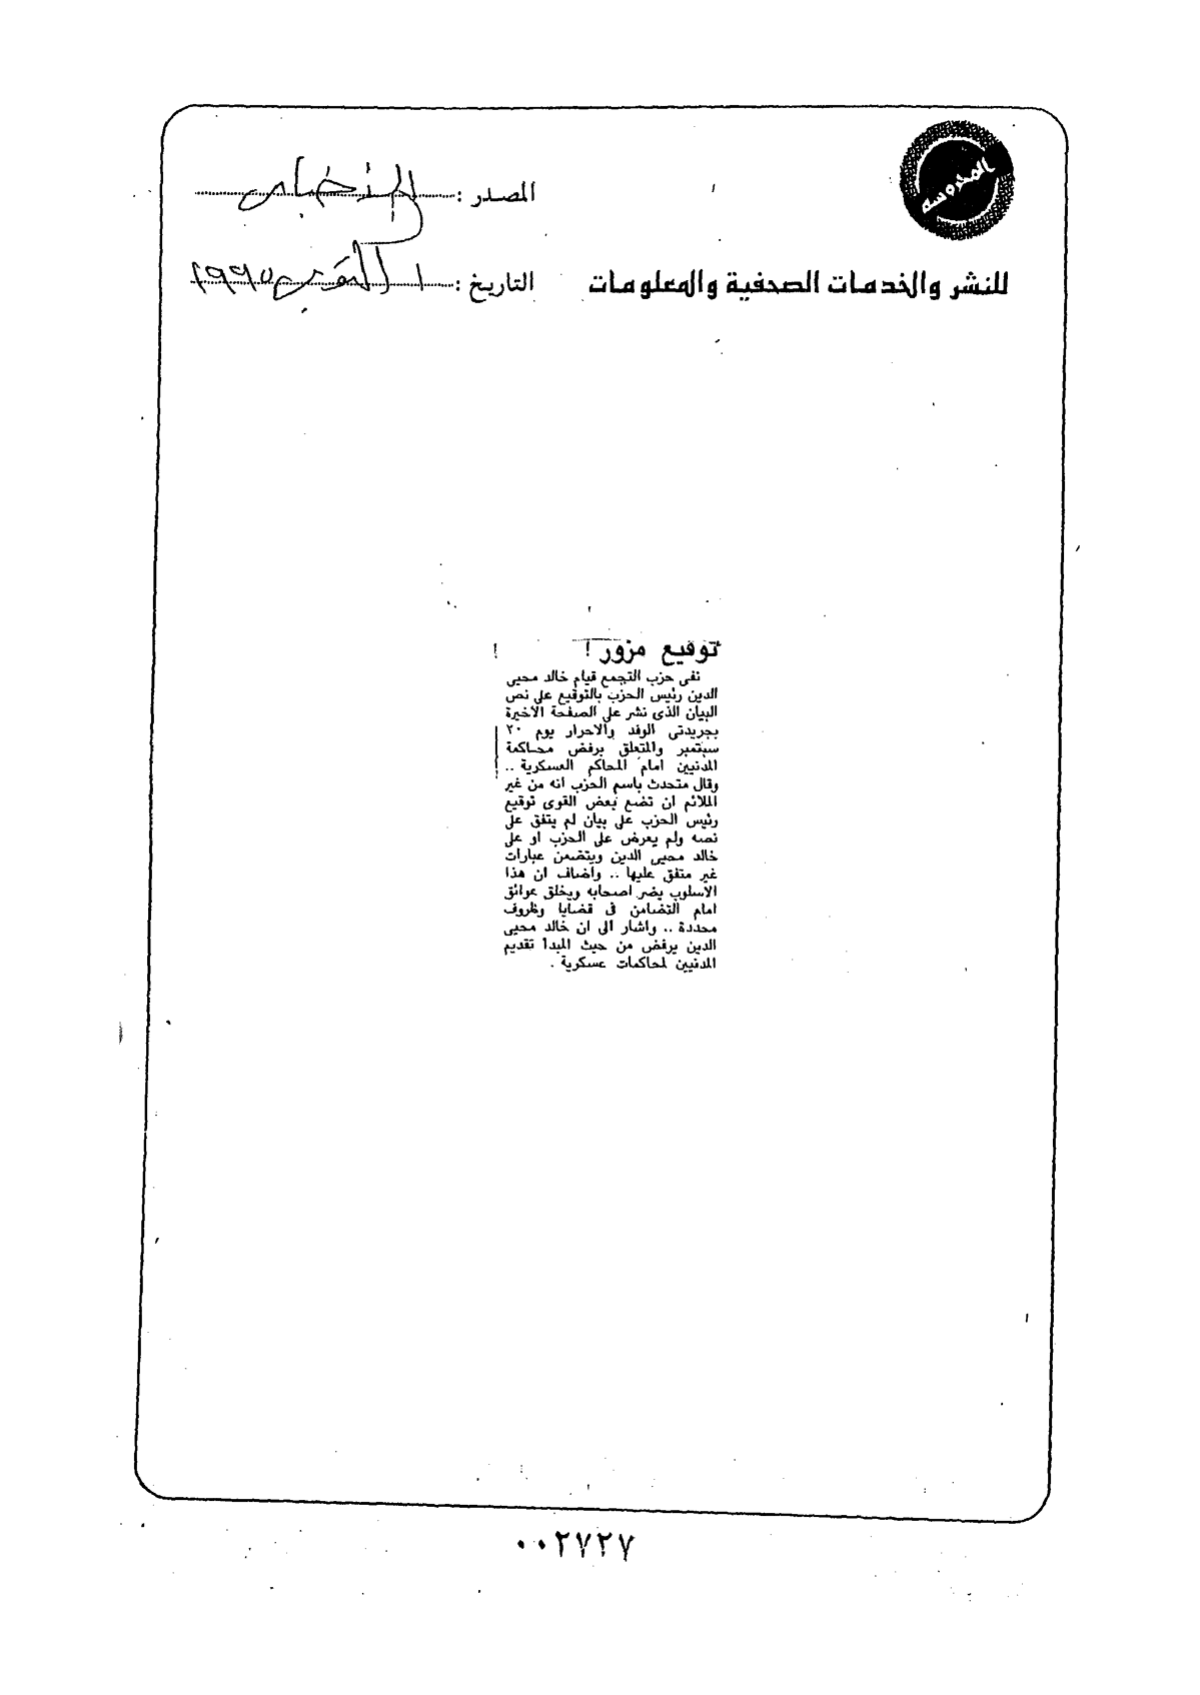 المحروسة
المصدر :
للنشر والخدمات الصحفية والمعلومات
التاريخ : ١ أكتوبر ١٩٩٥
توقيع مزور !
نفى حزب التجمع قيام خالد محيى
الدين رئيس الحزب بالتوقيع على نص
البيان الذى نشر على الصفحة الأخيرة
بجريدتى الوفد والاحرار يوم ٢٠
سبتمبر والمتعلق برفض محاكمة
المدنيين امام المحاكم العسكرية ..
وقال متحدث باسم الحزب انه من غير
الملائم ان تضع بعض القوى توقيع
رئيس الحزب على بيان لم يتفق على
نصه ولم يعرض على الحزب او على
خالد محيى الدين ويتضمن عبارات
غير متفق عليها .. واضاف ان هذا
الأسلوب يضر اصحابه ويخلق عوائق
امام التضامن فى قضايا وظروف
محددة .. واشار الى ان خالد محيى
الدين يرفض من حيث المبدأ تقديم
المدنيين لمحاكمات عسكرية .
٠٠٢٧٢٧